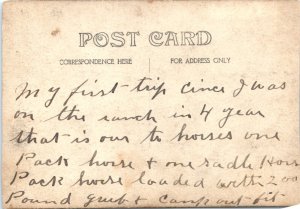 POST CARD
CORRESPONDENCE HERE
FOR ADDRESS ONLY
My first trip cince I was
on the ranch in 4 year
that is our to horses one
Pack horse & one sadle Hors
Pack horse loaded with 200
Pound grub & camp out fit